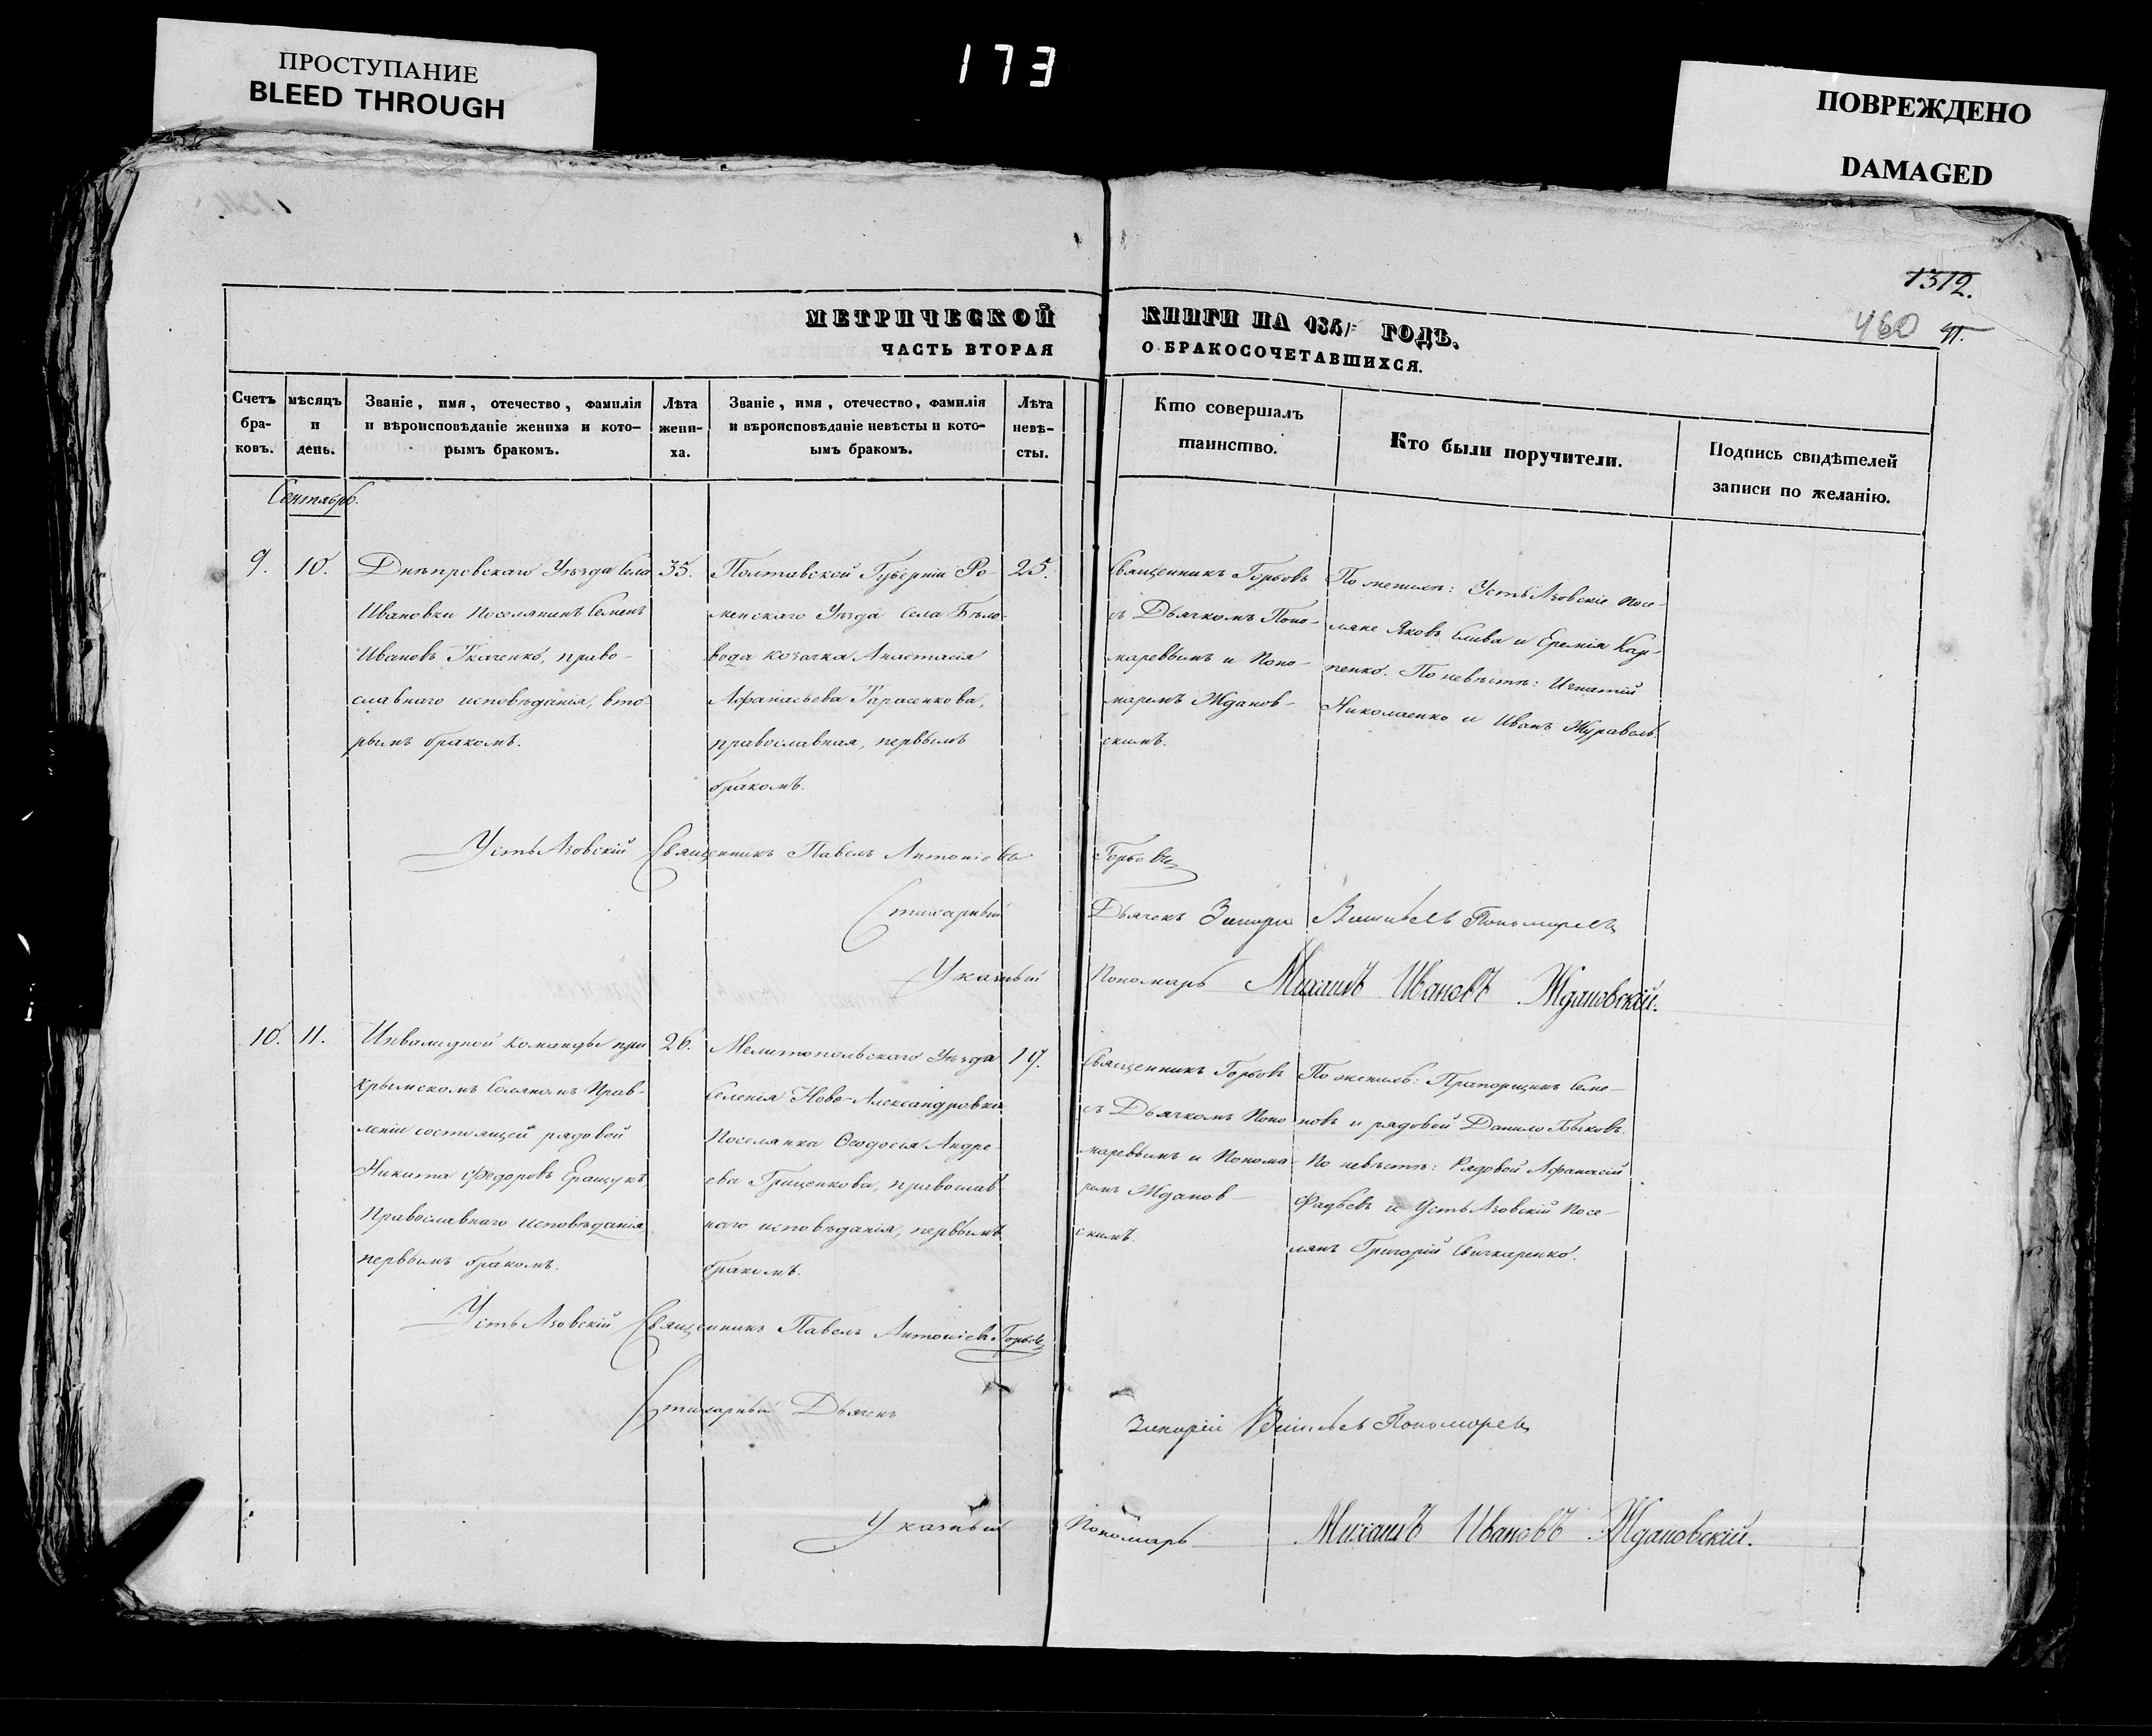 ПРОСТУПАНИЕ
BLEED THROUGH
173
ПОВРЕЖДЕНО
DAMAGED
1312.
460
МЕТРИЧЕСКОЙ КНИГИ НА 185 ГОДЪ.
ЧАСТЬ ВТОРАЯ О БРАКОСОЧЕТАВШИХСЯ.
Счетъ бра-ковъ.
мѣсяцъ и день.
Званіе, имя, отечество, фамилія
и вѣроисповѣданіе жениха и кото-
рымъ бракомъ.
Лѣта жени-ха.
Званіе, имя, отечество, фамилія
и вѣроисповѣданіе невѣсты и кото-
ымъ бракомъ.
Лѣта невѣ-сты.
Кто совершалъ
таинство.
Кто были поручители.
Подпись свидѣтелей
записи по желанію.
Сентябрь.
9.
10.
Днѣпровскаго Уѣзда Села
Ивановки Поселянинъ Семенъ
Ивановъ Ткаченко, право-
славнаго исповѣданія, вто-
рымъ бракомъ.
35.
Полтавской Губерніи Ро-
менскаго Уѣзда Села Бѣло-
вода козачка Анастасія
Афанасьева Тарасенкова,
православная, первымъ
бракомъ.
25.
Священникъ Горбовъ
съ Дьячкомъ Поно-
маревымъ и Поно-
маремъ Жданов-
скимъ.
По женихѣ: УстьАзовскіе посе-
ляне Яковъ Слива и Еремія Кар-
пенко. По невѣстѣ: Игнатій
Николаенко и Иванъ Журавель.
УстьАзовскій Священникъ Павелъ Антоніевъ Горбовъ
Стихарный Дьячекъ Васильевъ Пономаревъ
Указный Пономарь Михаилъ Ивановъ Ждановскій.
10.
11.
Инвалидной команды при
Крымскомъ Соляномъ Прав-
леніи состоящей рядовой
Никита Федоровъ Еращукъ,
Православнаго исповѣданія,
первымъ бракомъ.
26.
Мелитопольскаго Уѣзда
Селенія Ново-Александровки
Поселянка Ѳеодосія Андре-
ева Гриценкова, православ-
наго исповѣданія, первымъ
бракомъ.
19.
Священникъ Горбовъ
съ Дьячкомъ Поно
маревымъ и Понома-
ремъ Жданов-
скимъ.
По женихѣ: Прапорщикъ Семе-
новъ и рядовой Данило Быковъ.
По невѣстѣ: Рядовой Афанасій
Фадѣевъ и УстьАзовскій Посе-
лянъ Григорій Свичкаренко.
УстьАзовскій Священникъ Павелъ Антоніевъ Горбовъ
Стихарный Дьячекъ Васильевъ Пономаревъ
Указный Пономарь Михаилъ Ивановъ Ждановскій.